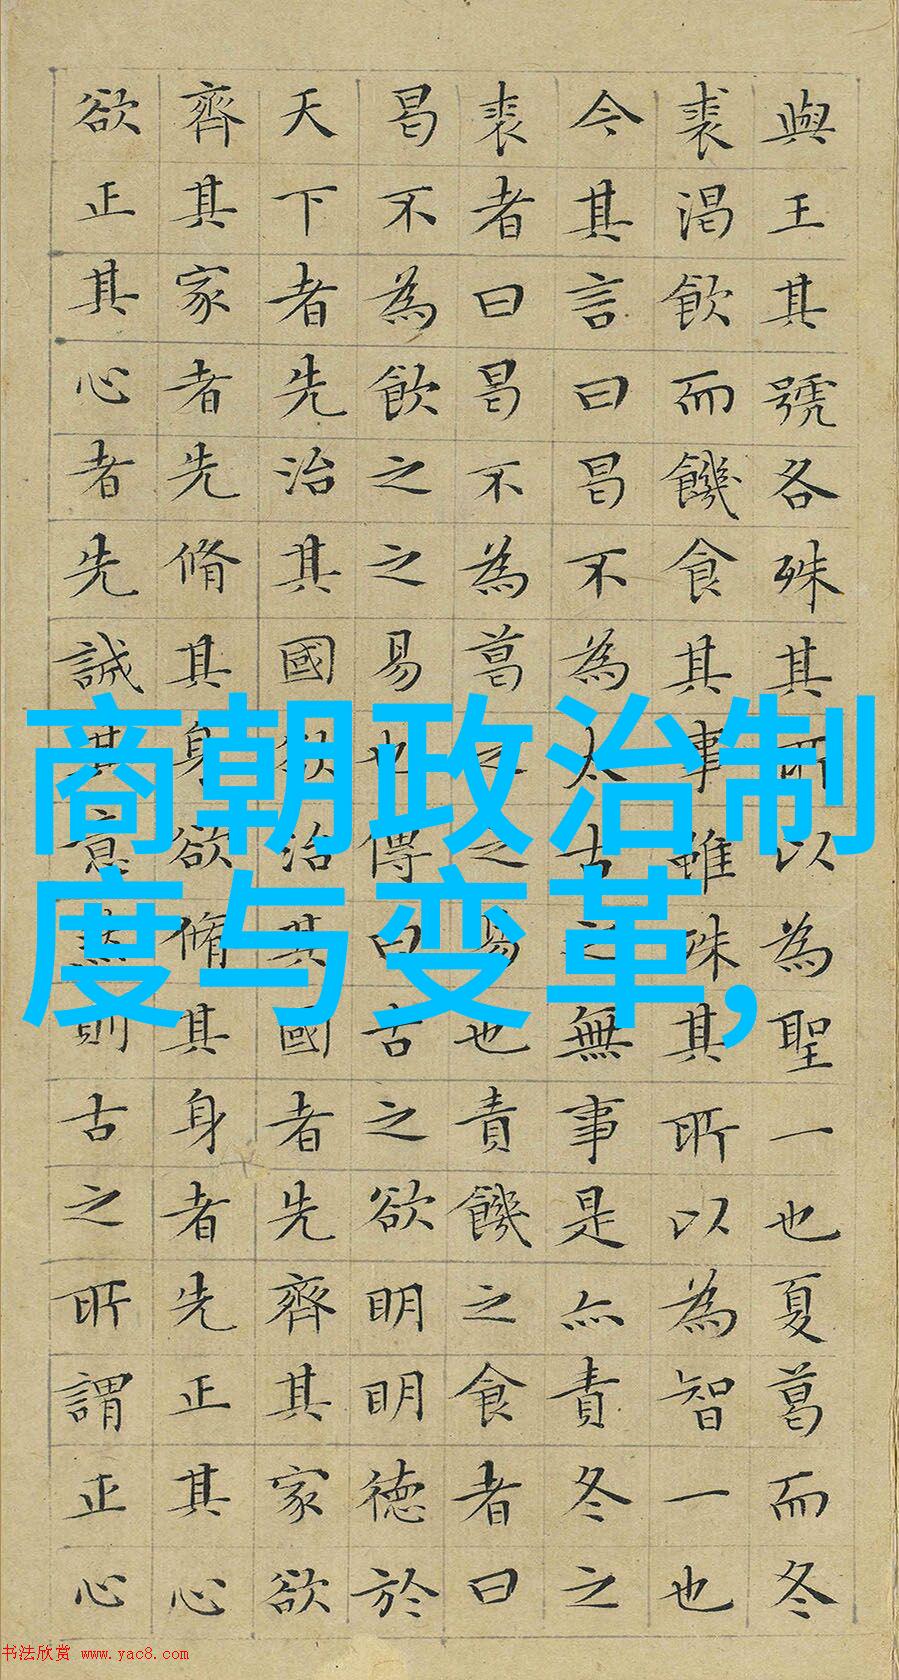 與王其號各殊其所以為聖一也夏葛而冬
裘渴飲而饑食其事雖殊其所以為智一也
今其言曰曷不為太古之無事是亦責冬之
裘者曰曷不為葛之之易也責饑之食者曰
曷不為飲之之易也傳曰古之欲明明德於
天下者先治其國欲治其國者先齊其家欲
齊其家者先脩其身欲脩其身者先正其心
欲正其心者先誠其意然則古之所謂正心
商朝政治制
度与变革,
书法欣赏 www.yac8.com